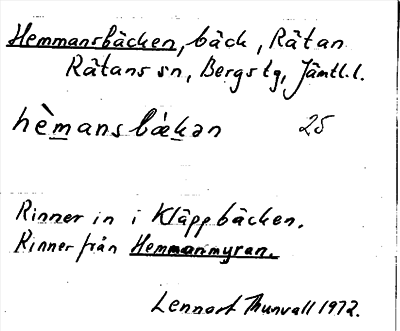 Hemmansbäcken, bäck, Rätan
Rätans sn, Bergs tg, Jämtl. l.
hèmansbækən 25
Rinner in i Kläppbäcken.
Rinner från Hemmanmyran.
Lennart Thunvall 1972.